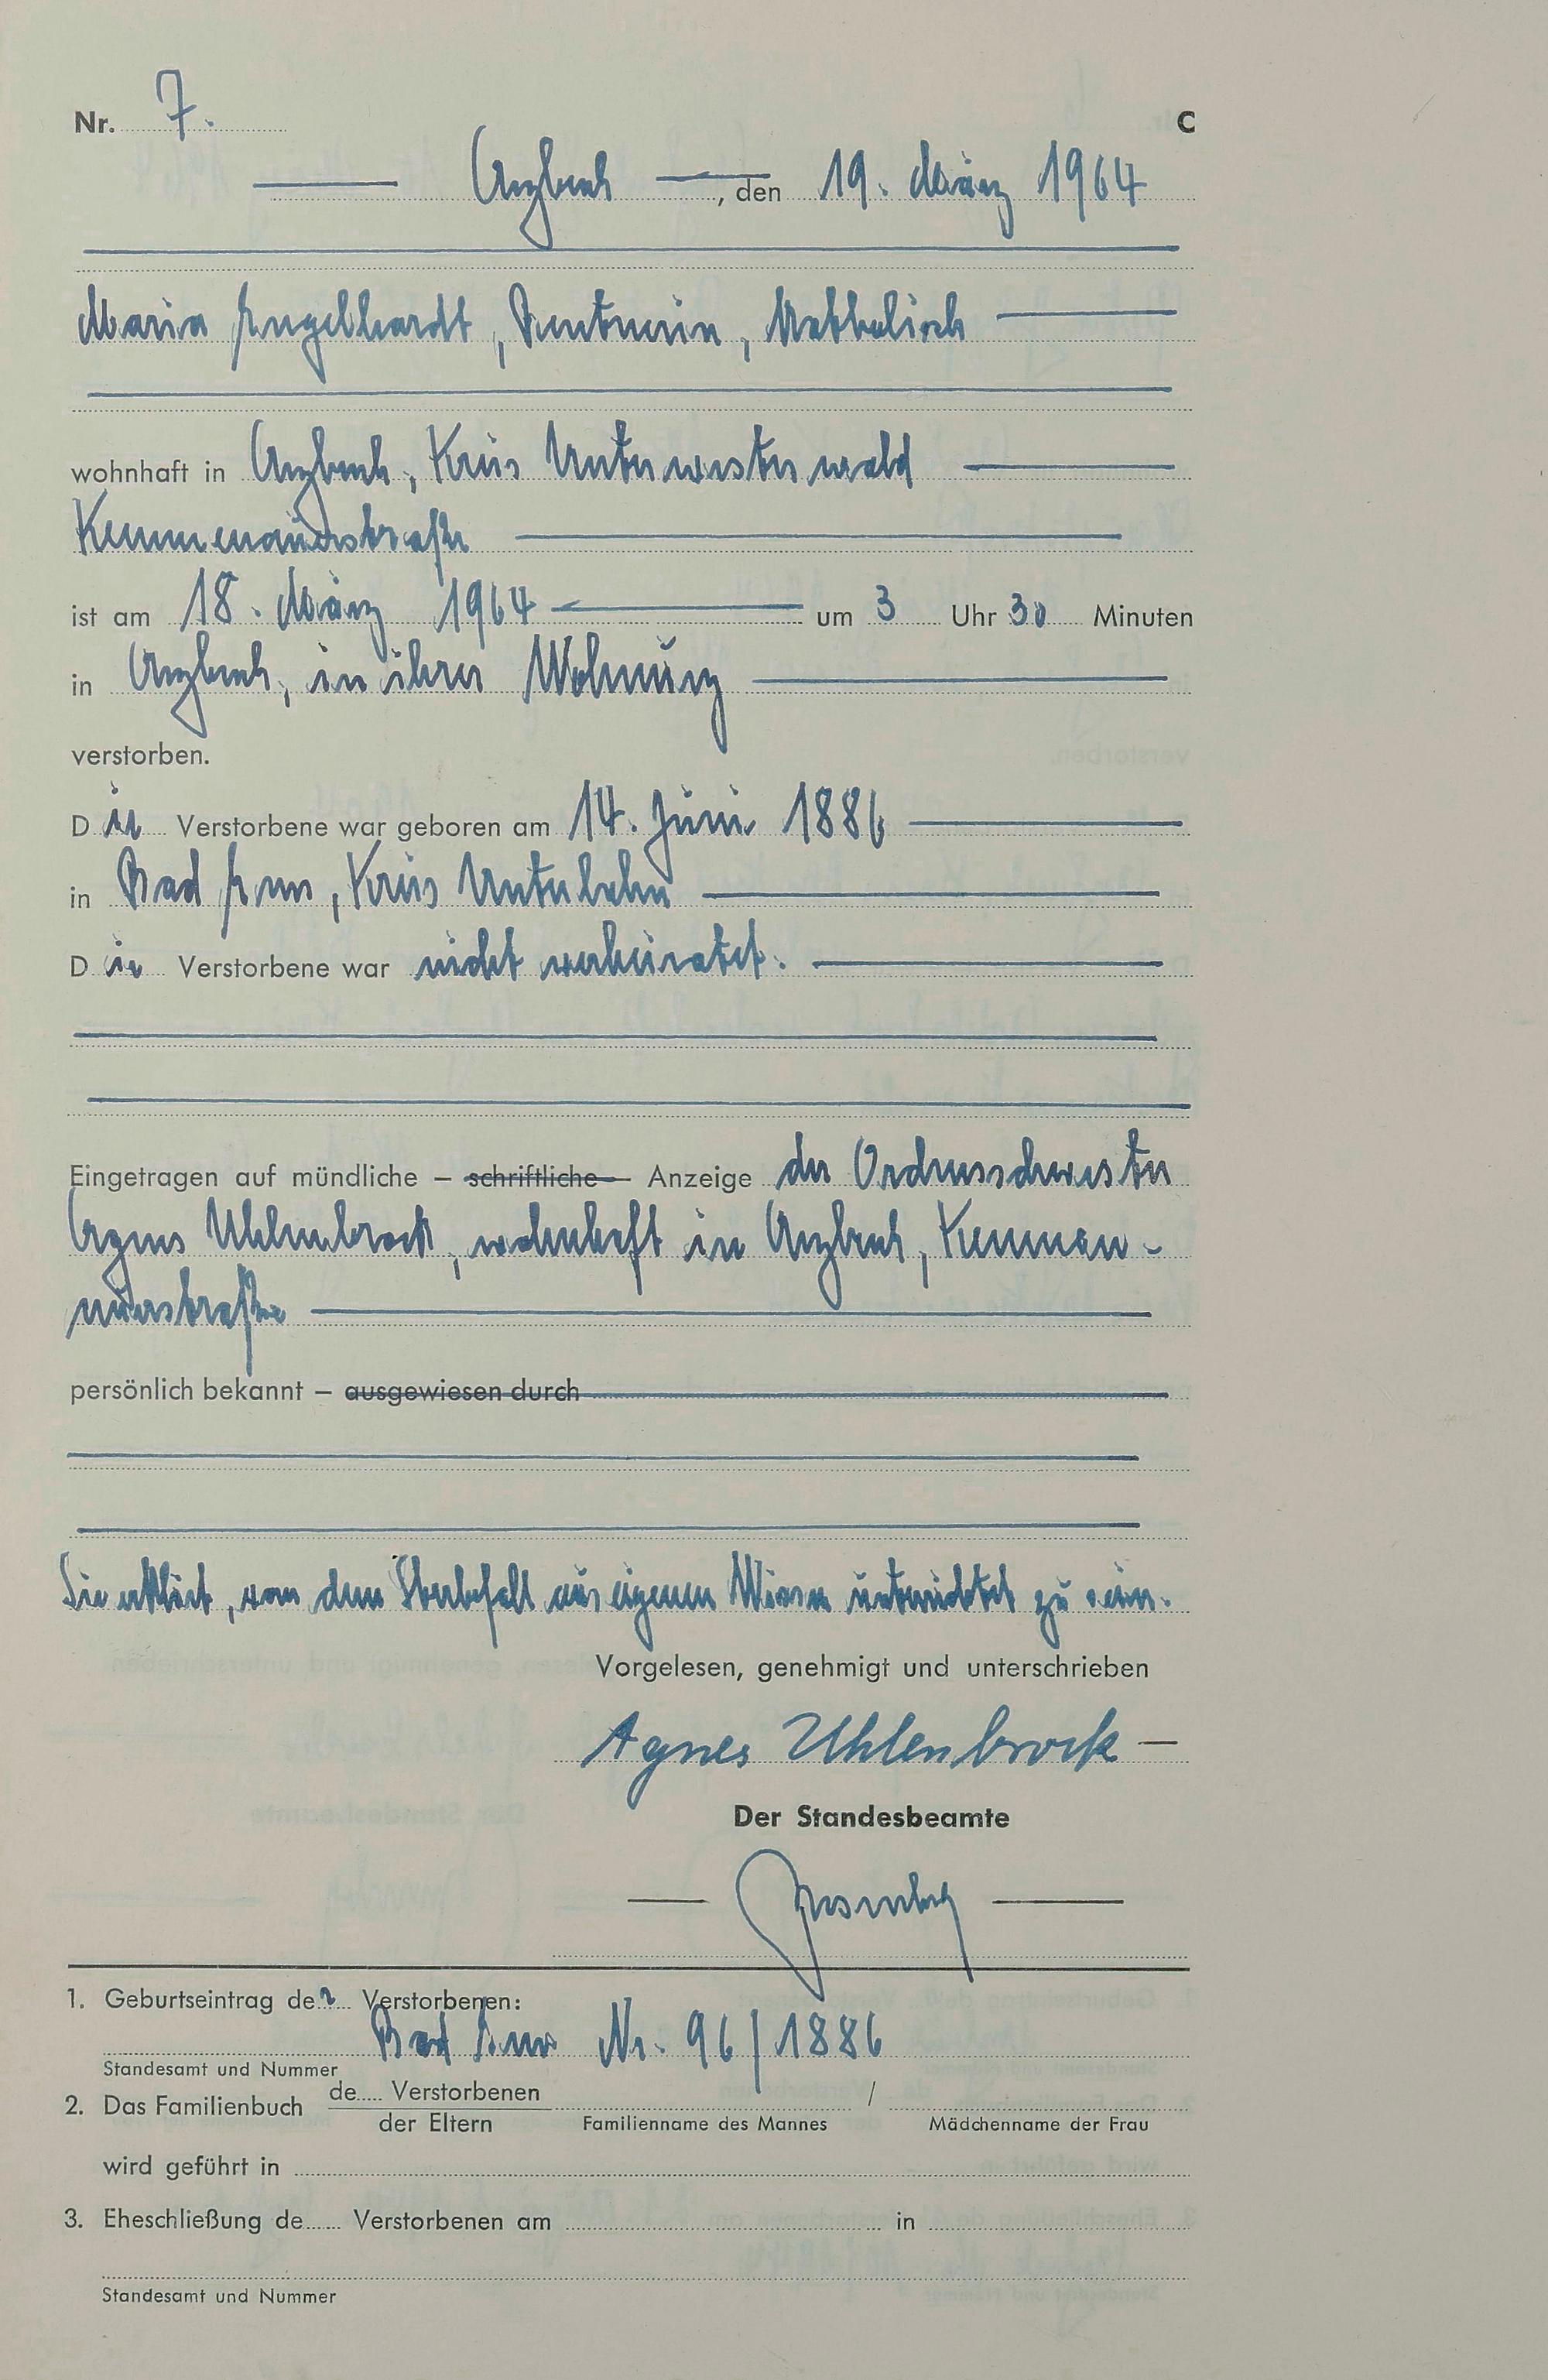 Nr. 7. C
Arzbach, den 19. März 1964
Maria Engelhardt, Rentnerin, katholisch
wohnhaft in Arzbach, Kreis Unterwesterwald
Kemmenauerstraße
ist am 18. März 1964 um 3 Uhr 30 Minuten
in Arzbach, in ihrer Wohnung
verstorben.
Die Verstorbene war geboren am 14. Juni 1886
in Bad Ems, Kreis Unterlahn
Die Verstorbene war nicht verheiratet.
Eingetragen auf mündliche – schriftliche – Anzeige der Ordensschwester
Agnes Uhlenbrock, wohnhaft in Arzbach, Kemmen-
auerstraße
persönlich bekannt – ausgewiesen durch
Sie erklärt, von dem Sterbefall aus eigenem Wissen unterrichtet zu sein.
Vorgelesen, genehmigt und unterschrieben
Agnes Uhlenbrock
Der Standesbeamte
1. Geburtseintrag der Verstorbenen:
Bad Ems Nr. 96/1886
Standesamt und Nummer
2. Das Familienbuch de.... Verstorbenen /
der Eltern Familienname des Mannes Mädchenname der Frau
wird geführt in
3. Eheschließung de...... Verstorbenen am in
Standesamt und Nummer